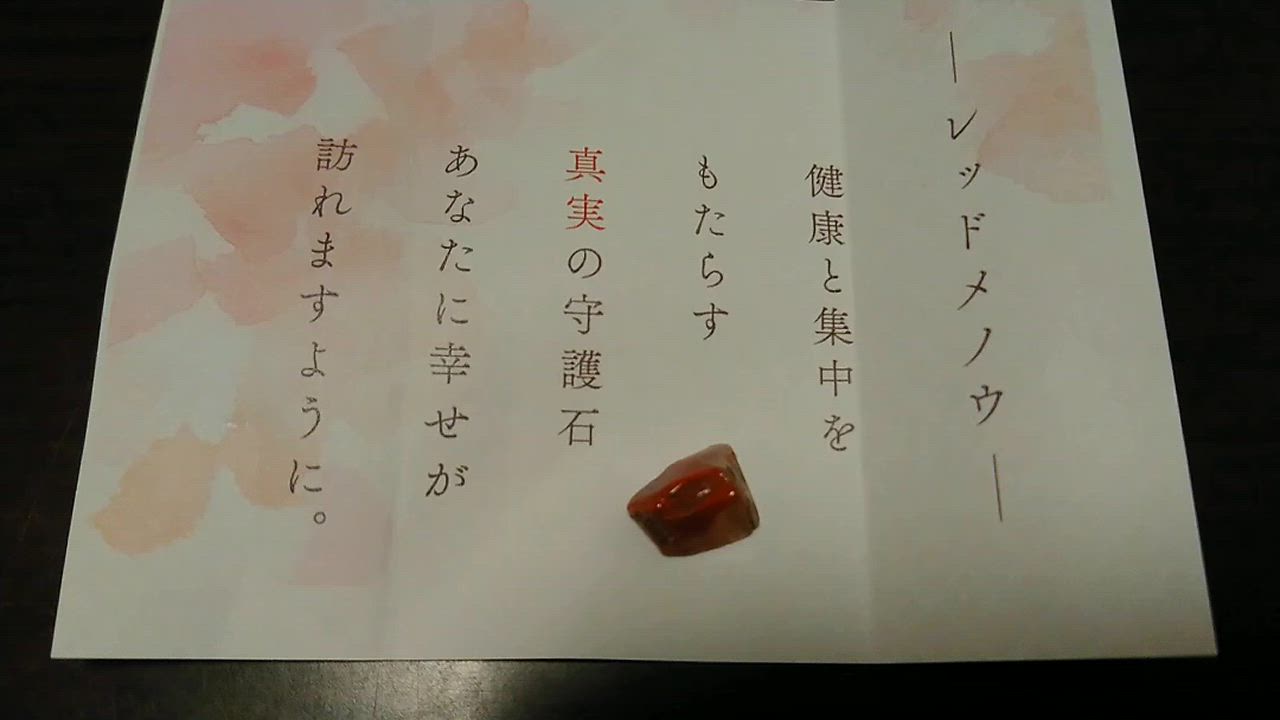 ―レッドメノウ―
健康と集中を
もたらす
真実の守護石
あなたに幸せが
訪れますように。